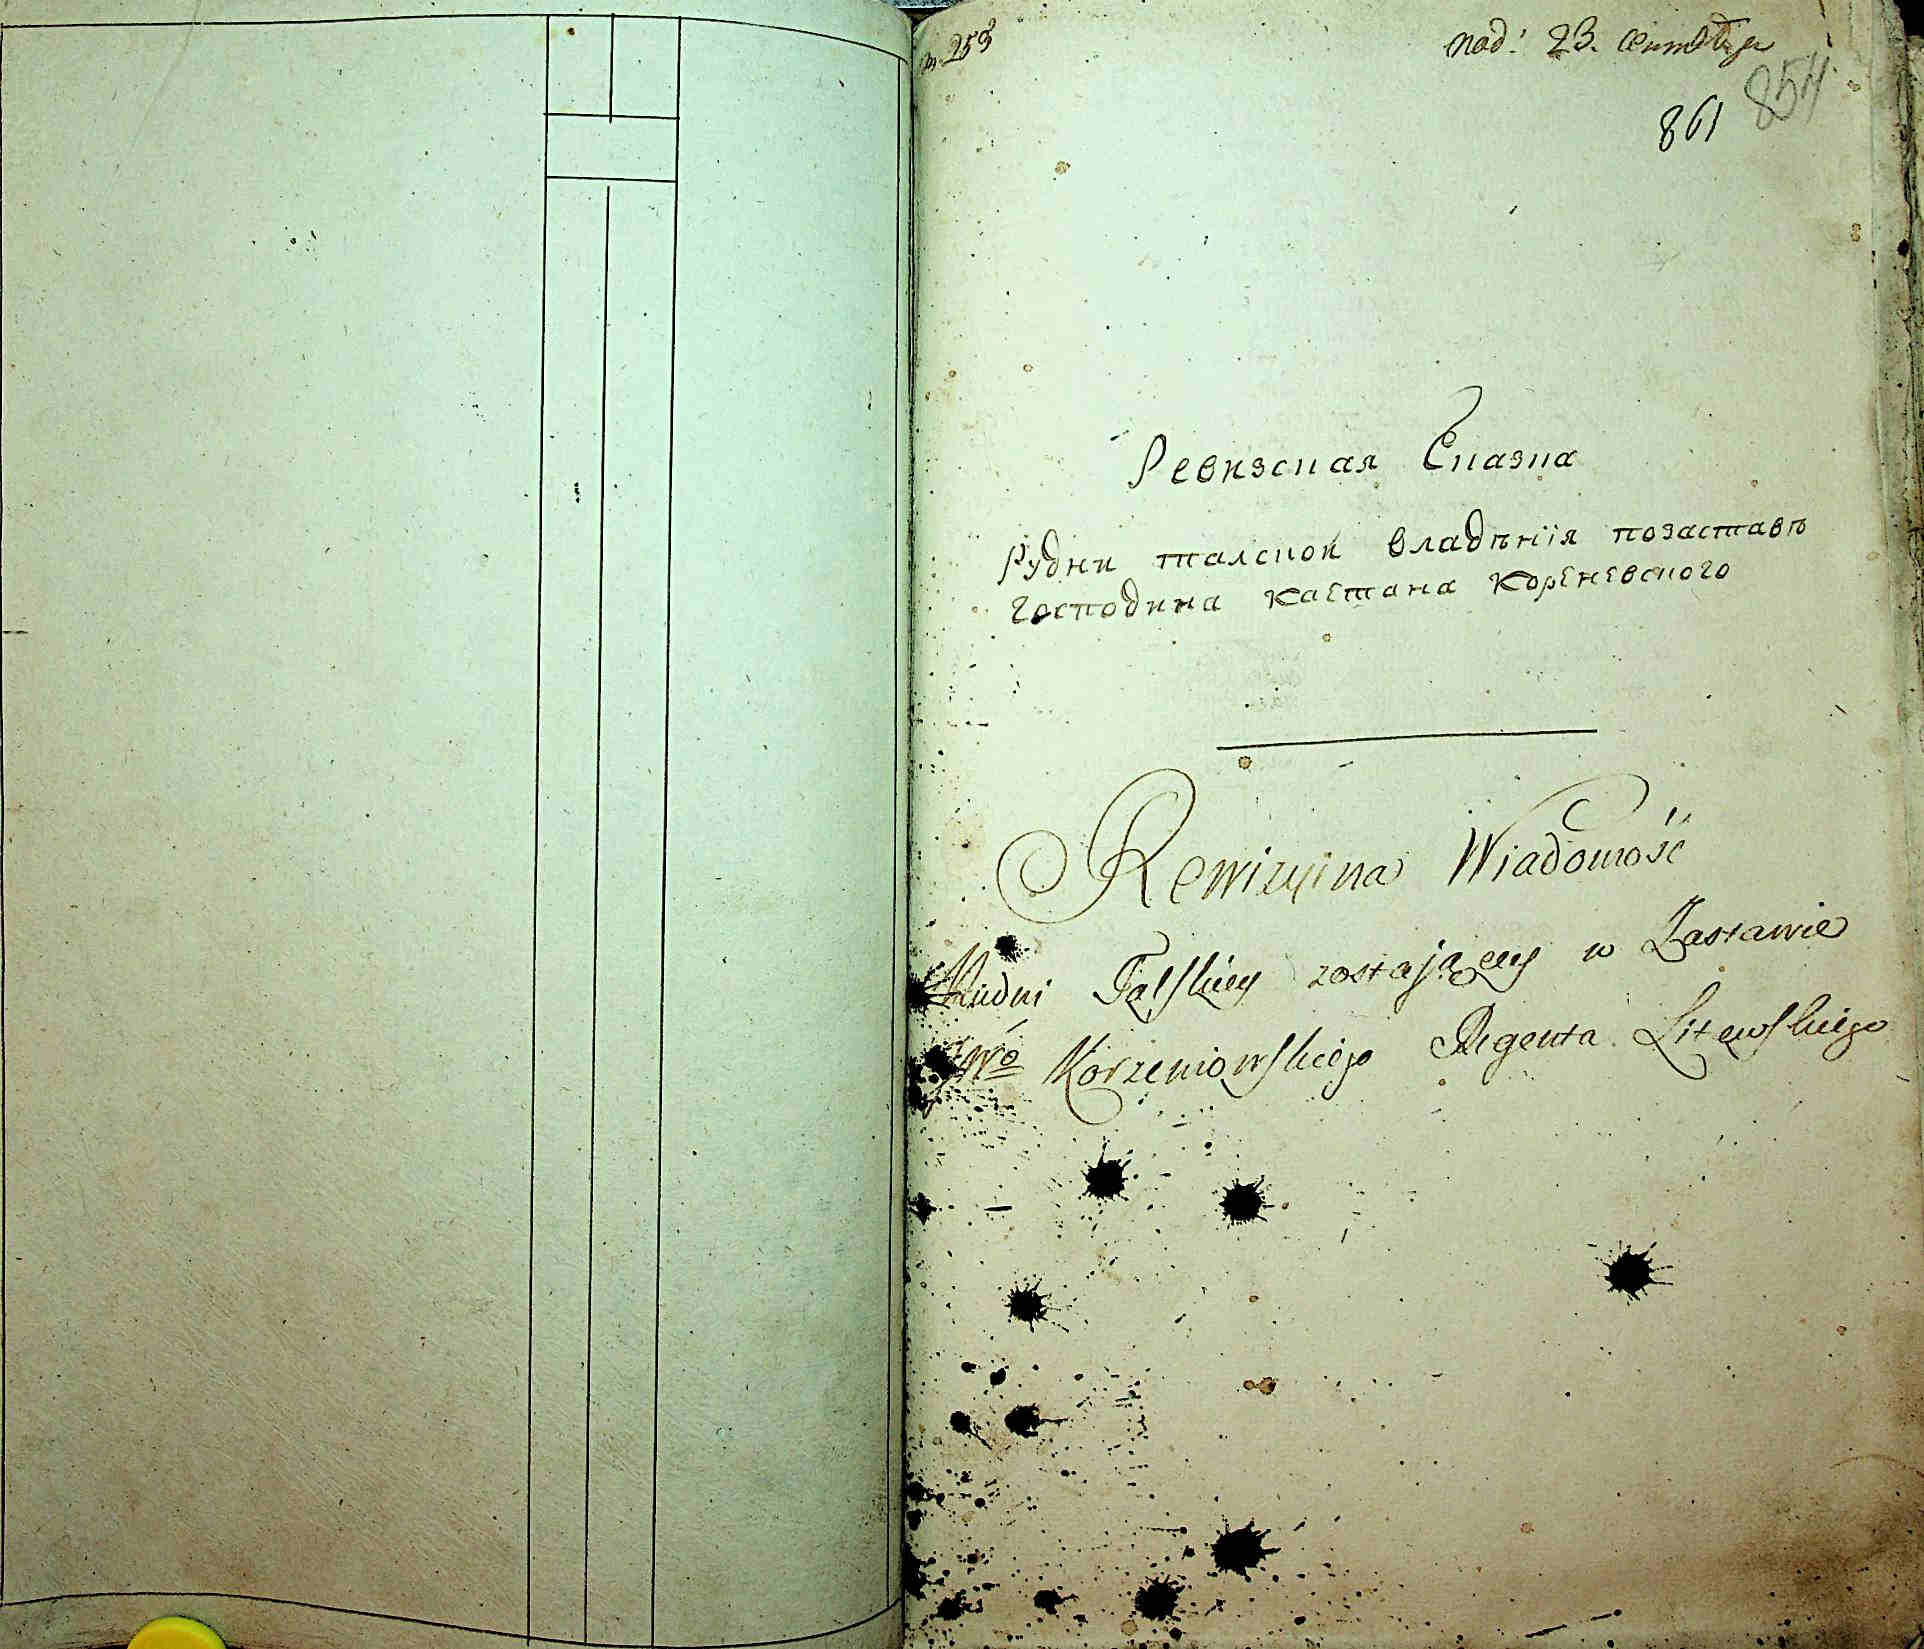 253
под: 23. сентября
854
861
Ревизская Сказка
Рудни талской владѣнїя позаставѣ
господина каетана кореневского
Rewizyina Wiadomość
Rudni Talskiey zostaiącey w Zastawie
JWo Korzeniowskiego Regenta Litewskiego